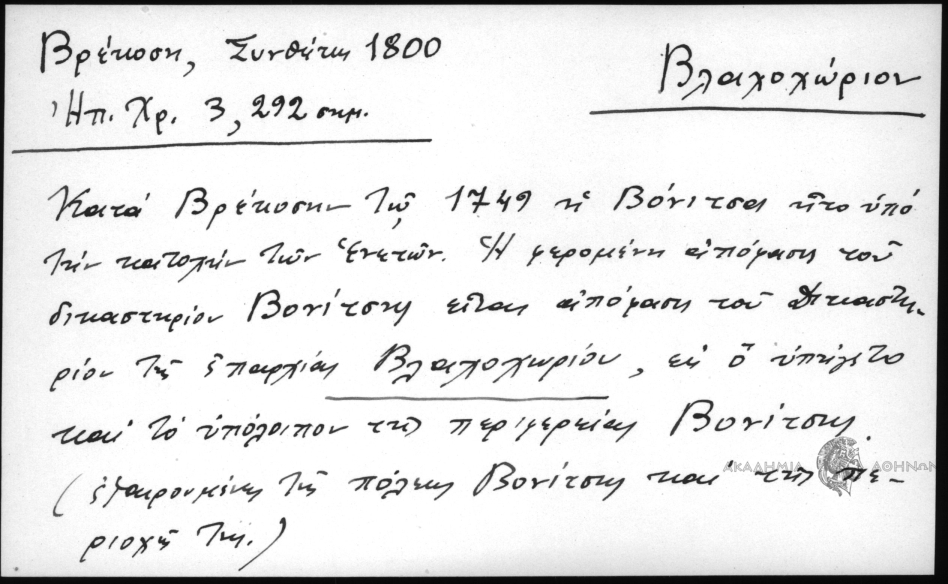 Βρέκοση, Συνθέτις 1800
Βλαχοχώριον
Ἠπ. Χρ. 3, 292 σημ.
Κατά Βρέκοσην τῷ 1749 ἡ Βόνιτσα ἦτο ὑπό
τήν κατοχήν τῶν Ἑνετῶν. Ἡ φερομένη ἀπόφασις τοῦ
δικαστηρίου Βονίτσης εἶναι ἀπόφασις τοῦ Δικαστη-
ρίου τῆς ἐπαρχίας Βλαχοχωρίου, εἰς ὅ ὑπήγετο
καί τό ὑπόλοιπον τῆς περιφερείας Βονίτσης
(ἐξαιρουμένης τῆς πόλεως Βονίτσης καί τῆς πε-
ριοχῆς της.)
ΑΚΑΔΗΜΙΑ ΑΘΗΝΩΝ